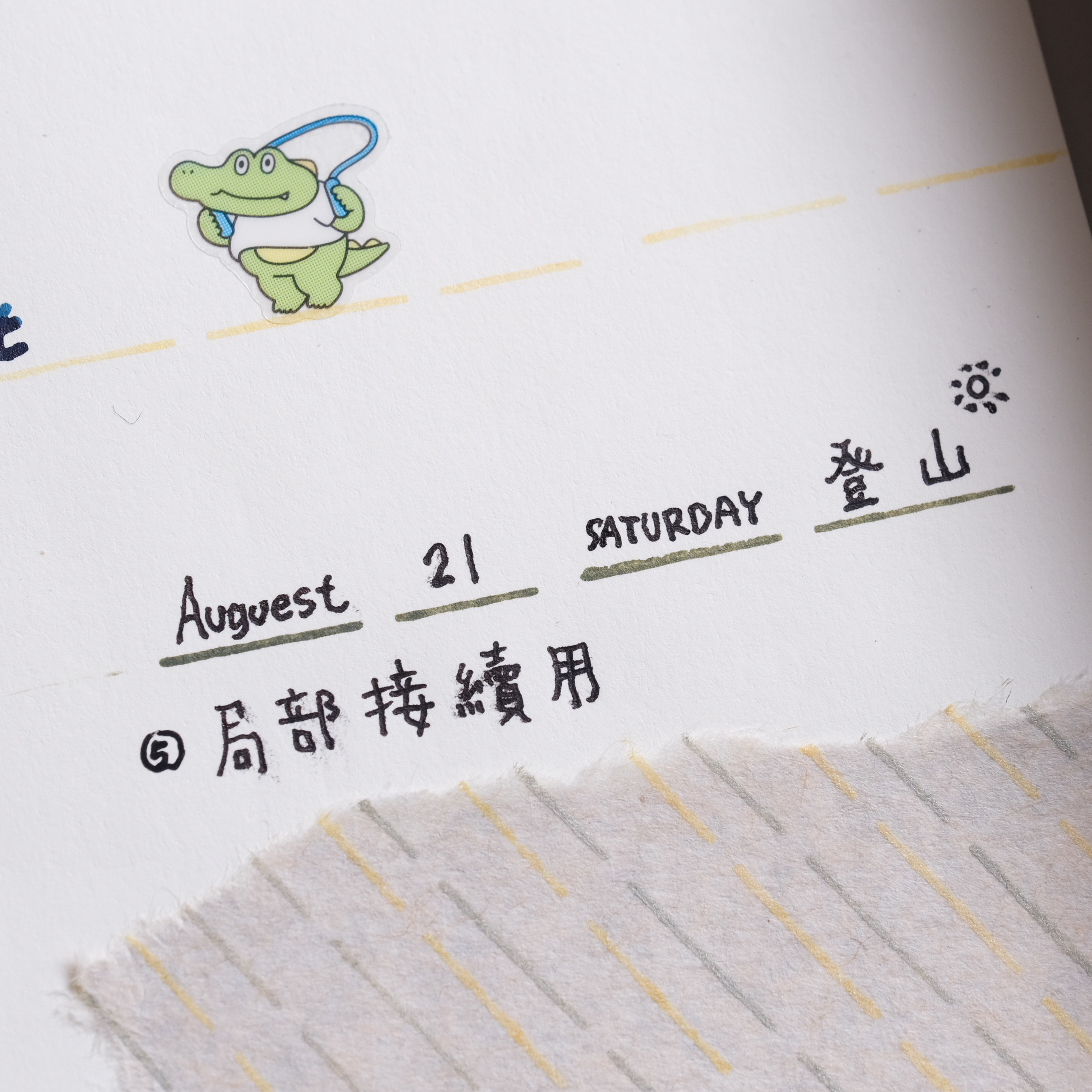 Auguest 21 SATURDAY 登山
⑤ 局部接續用